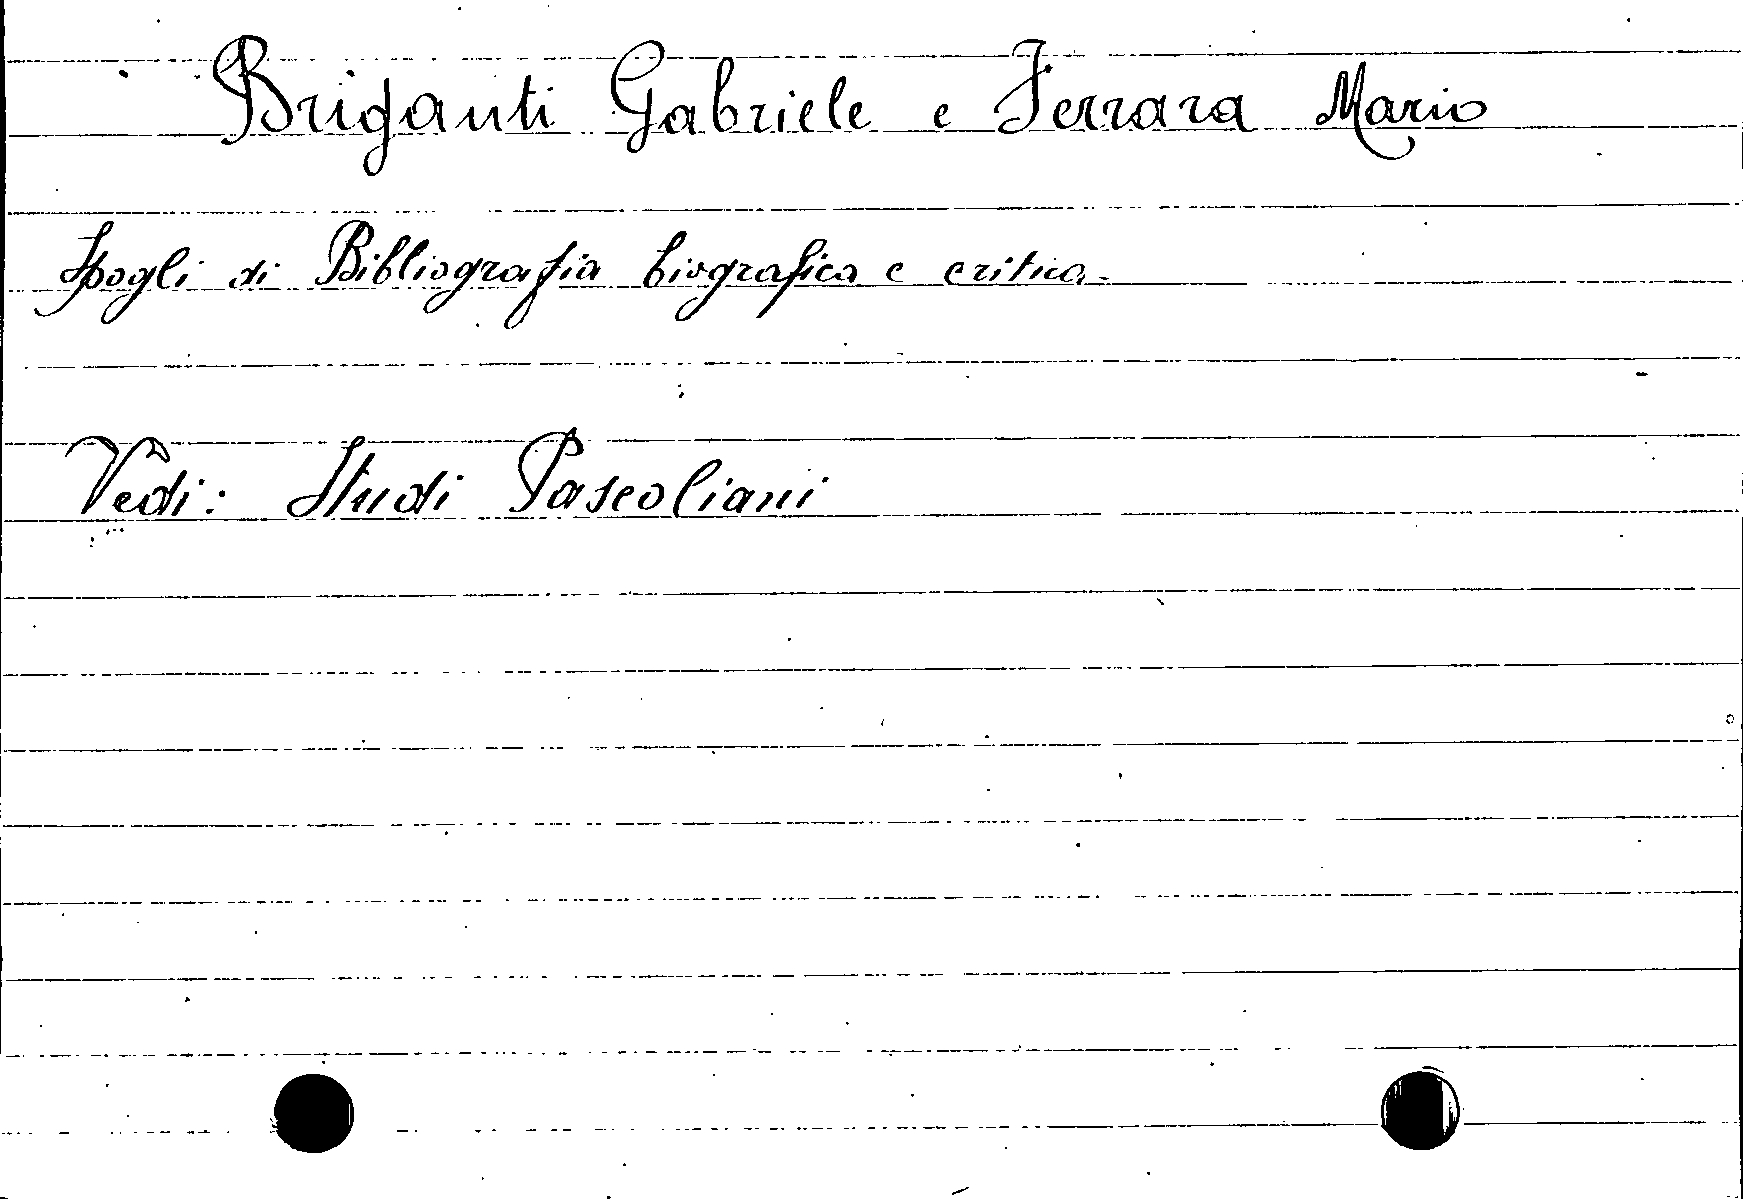 Briganti Gabriele e Ferrara Mario
Spogli di Bibliografia biografica e critica.
Vedi: Studi Pascoliani